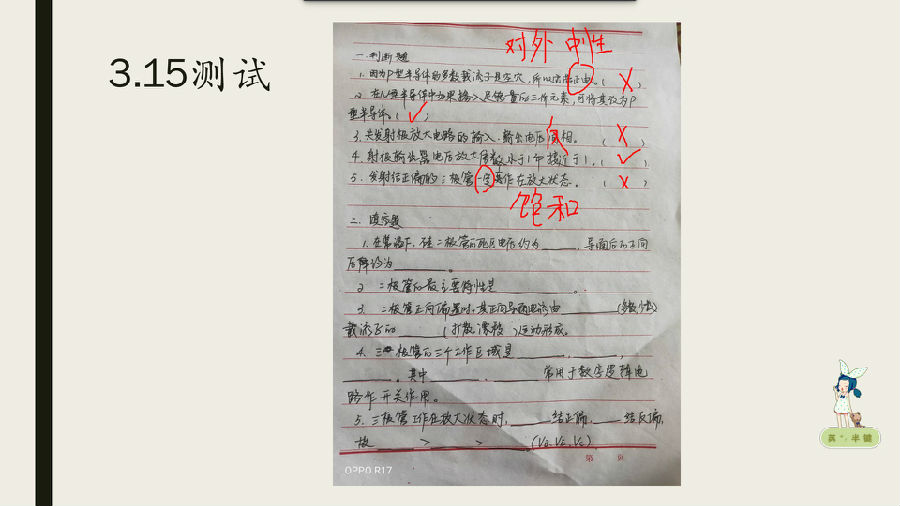 3.15测试
对外 中性
一.判断题
1.因为P型半导体的多数载流子是空穴，所以它带正电。( X )
2.在N型半导体中如果掺入足够量的三价元素，可将其改为P
型半导体。( ✓ )
3.共发射极放大电路的输入、输出电压 相。 ( X )
4.射极输出器电压放大倍数小于1而接近于1。( ✓ )
5.发射结正偏的三极管一定工作在放大状态。 ( X )
饱和
二、填空题
1.在常温下，硅二极管的死区电压约为______，导通后的正向
压降约为______。
2 二极管的最主要特性是________。
3. 二极管正向偏置时，其正向导通电流由________(多数、少数)
载流子的______(扩散、漂移)运动形成。
4.三极管的三个工作区域是______，______，
______。其中______、______常用于数字逻辑电
路作开关作用。
5.三极管工作在放大状态时，_____结正偏，_____结反偏，
故______>______>______。(VB、VE、VC)
第 页
OPPO R17
半键